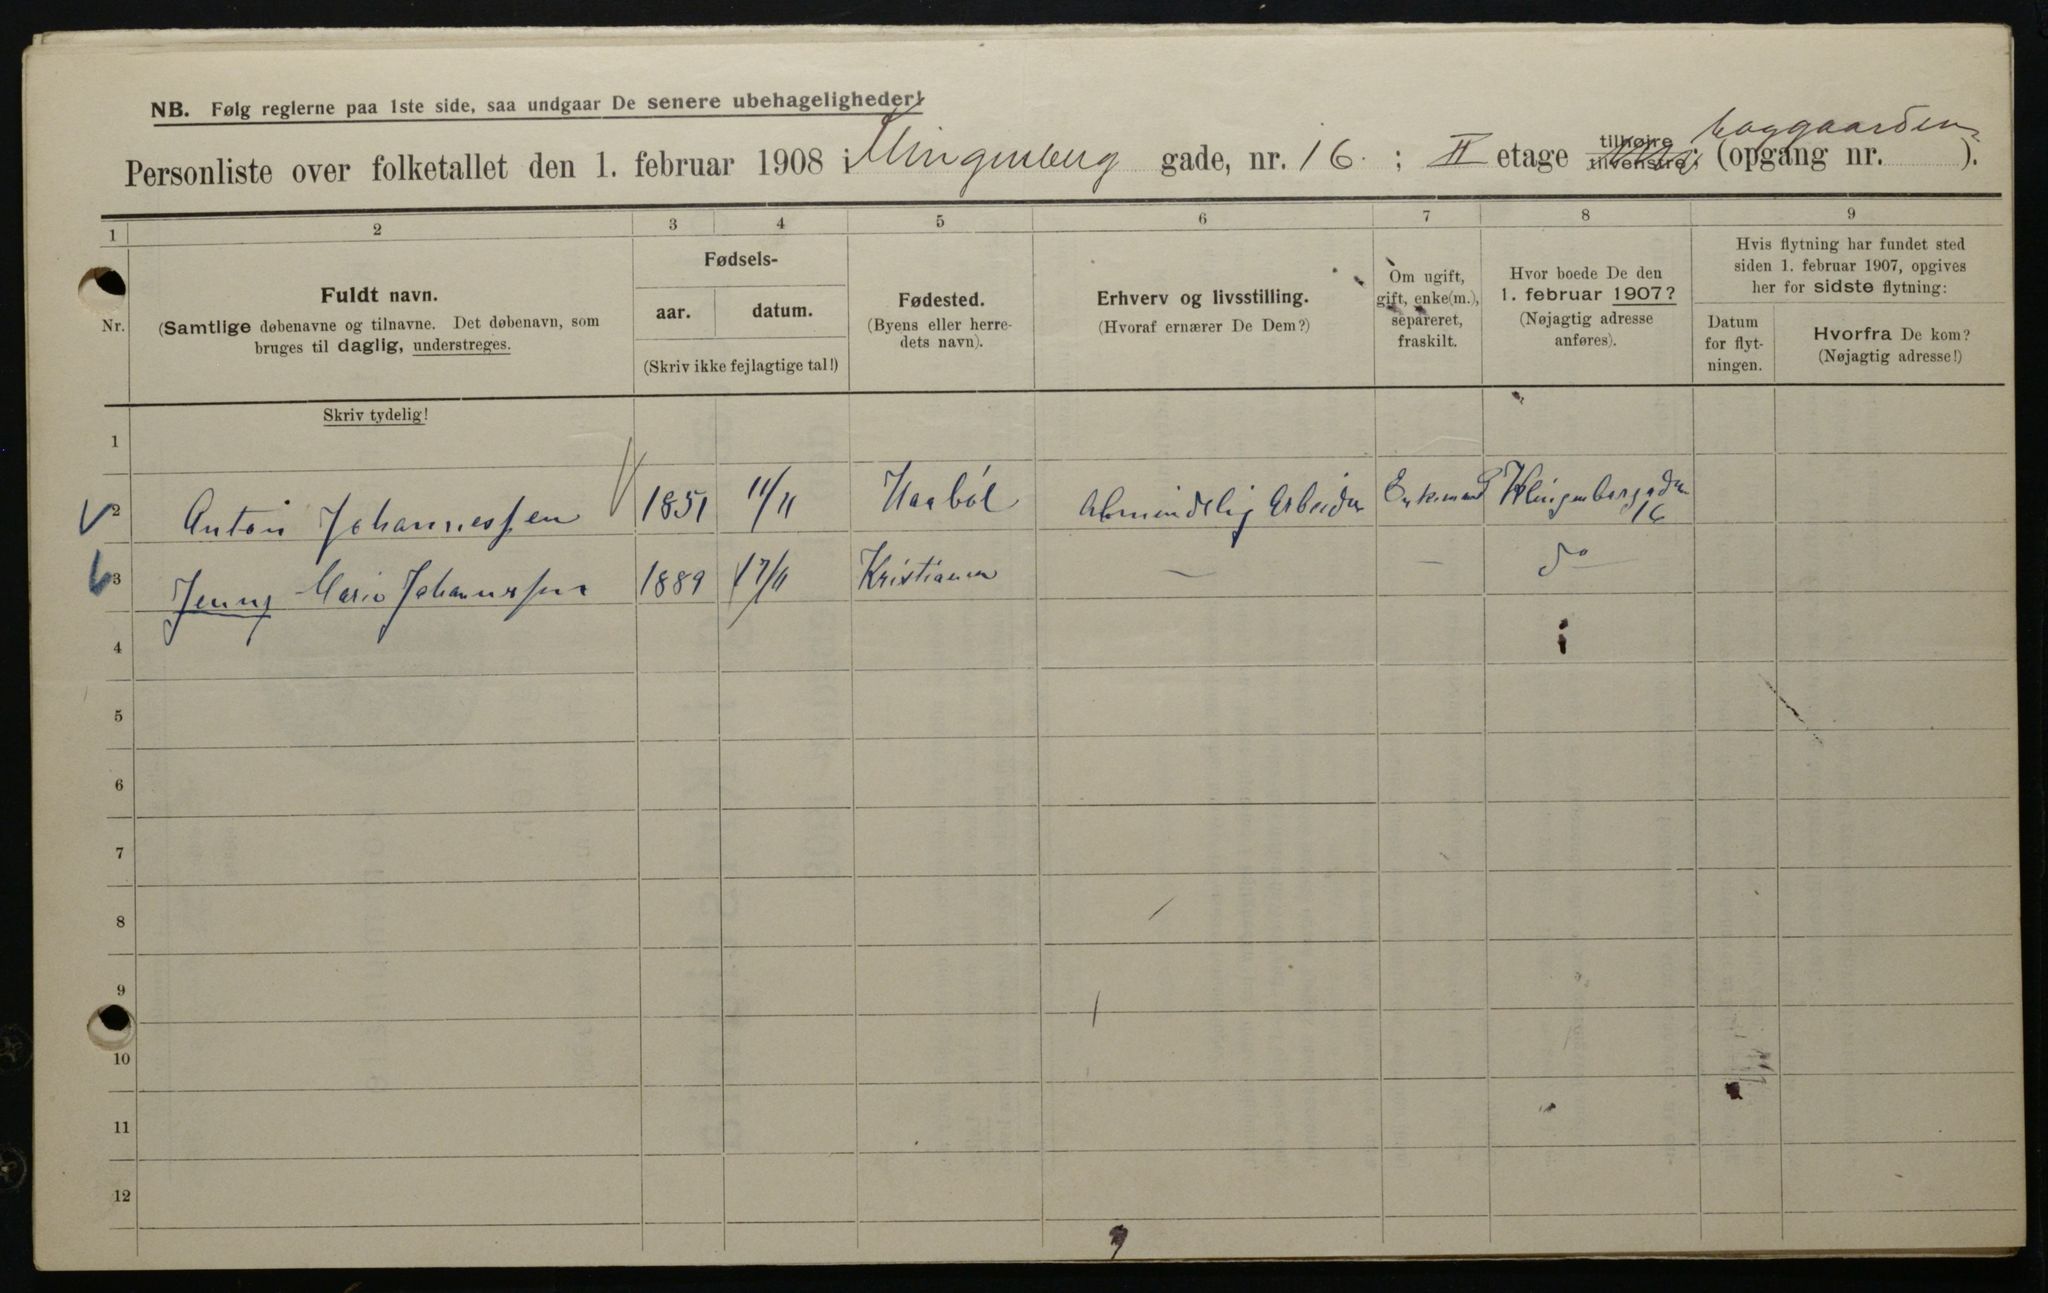 NB. Følg reglerne paa 1ste side, saa undgaar De senere ubehageligheder!
Personliste over folketallet den 1. februar 1908 i Klingenberg gade, nr. 16. ; II etage tilhøjre tilvenstre; (opgang nr. ).
baggaarden
1 2 3 4 5 6 7 8 9
Nr.
Fuldt navn.
(Samtlige døbenavne og tilnavne. Det døbenavn, som
bruges til daglig, understreges.
Skriv tydelig!
Fødsels-
aar. datum.
(Skriv ikke fejlagtige tal!)
Fødested.
(Byens eller herre-
dets navn).
Erhverv og livsstilling.
(Hvoraf ernærer De Dem?)
Om ugift,
gift, enke(m.),
separeret,
fraskilt.
Hvor boede De den
1. februar 1907?
(Nøjagtig adresse
anføres).
Hvis flytning har fundet sted
siden 1. februar 1907, opgives
her for sidste flytning:
Datum
for flyt-
ningen.
Hvorfra De kom?
(Nøjagtig adresse!)
1
2 Anton Johannessen 1851 11/11 Almindelig Arbeider Enkemand Klingenberggaden
16
3 Jenny Marie Johannessen 1889 17/11 — — do
4
5
6
7
8
9
10
11
12